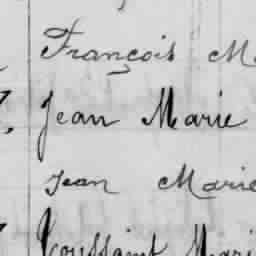 François M
Jean Marie
Jean Marie
Toussaint Mari